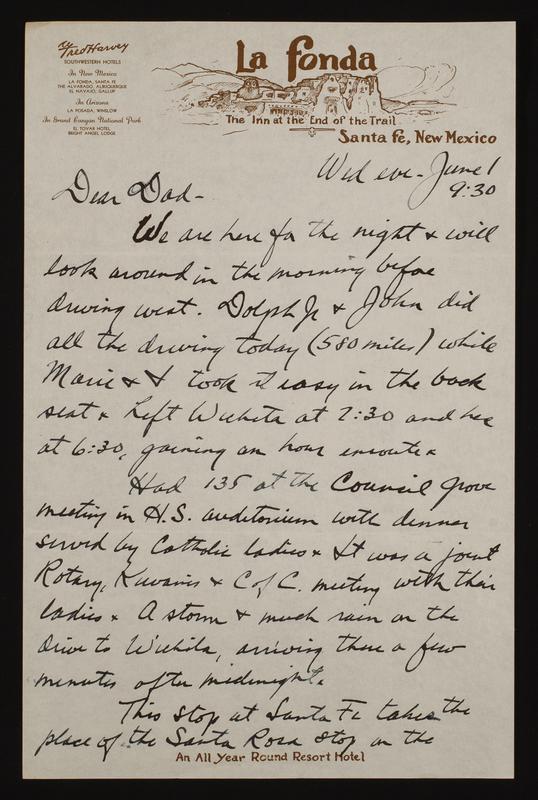 Fred Harvey
SOUTHWESTERN HOTELS
In New Mexico
LA FONDA, SANTA FE
THE ALVARADO, ALBUQUERQUE
EL NAVAJO, GALLUP
In Arizona
LA POSADA, WINSLOW
In Grand Canyon National Park
EL TOVAR HOTEL
BRIGHT ANGEL LODGE
La Fonda
The Inn at the End of the Trail
Santa Fe, New Mexico
Wed eve - June 1
9:30
Dear Dad -
We are here for the night & will
look around in the morning before
driving west. Dolph Jr & John did
all the driving today (580 miles) while
Marie & I took it easy in the back
seat. Left Wichita at 7:30 and here
at 6:30, gaining an hour enroute.
Had 135 at the Council Grove
meeting in H.S. auditorium with dinner
served by Catholic ladies. It was a joint
Rotary, Kiwanis & C of C. meeting with their
ladies. A storm & much rain on the
drive to Wichita, arriving there a few
minutes after midnight.
This stop at Santa Fe takes the
place of the Santa Rosa stop on the
An All Year Round Resort Hotel